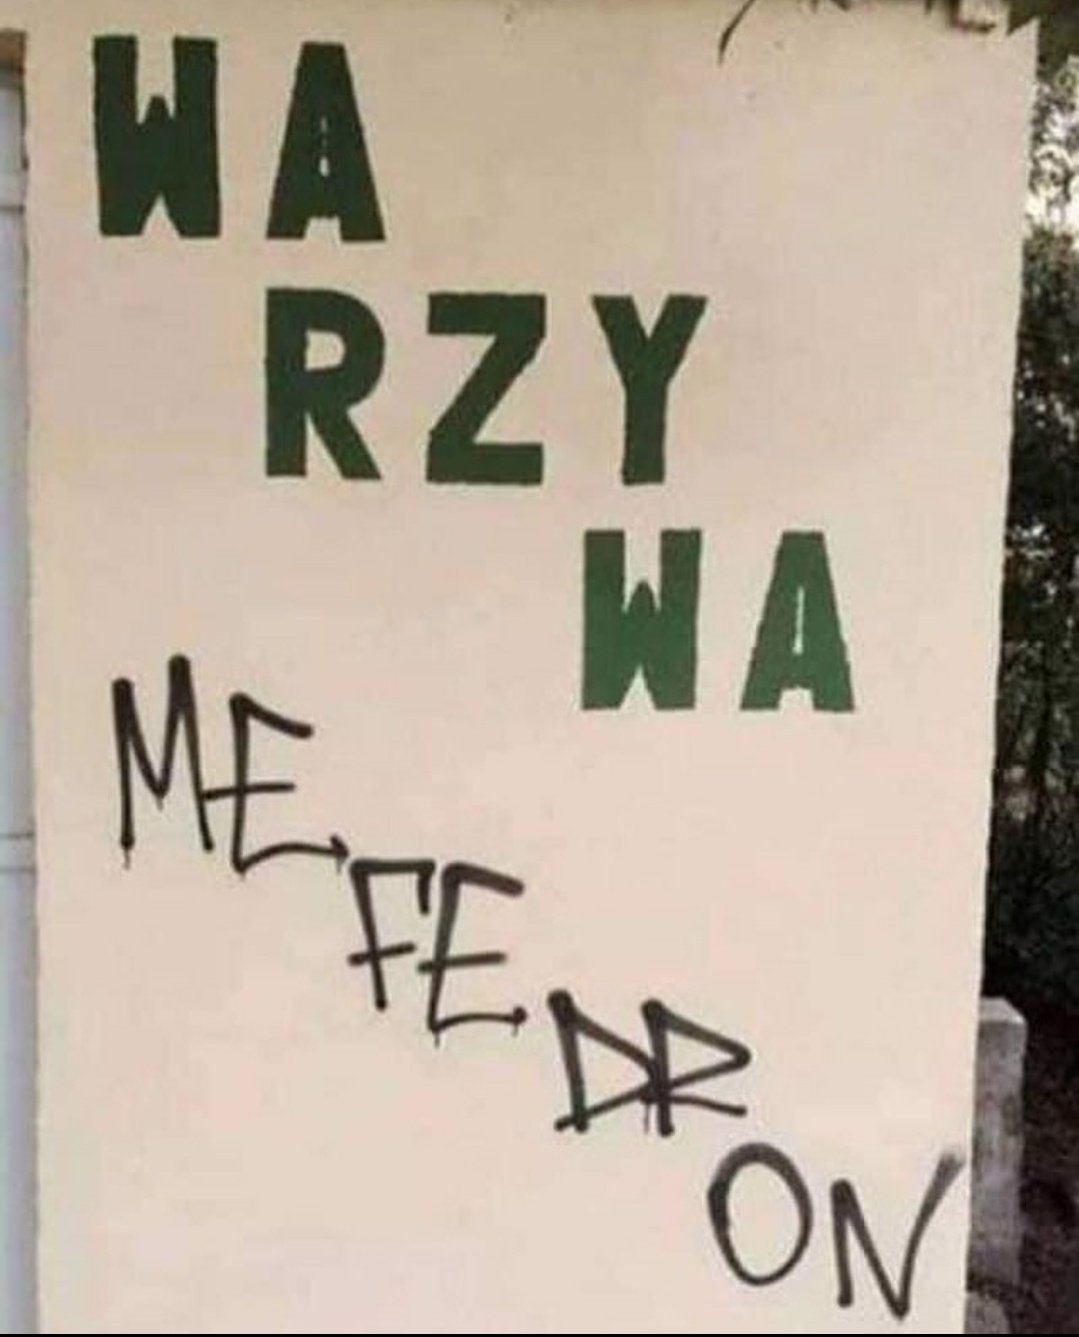 WA
RZY
WA
ME
FE
DR
ON